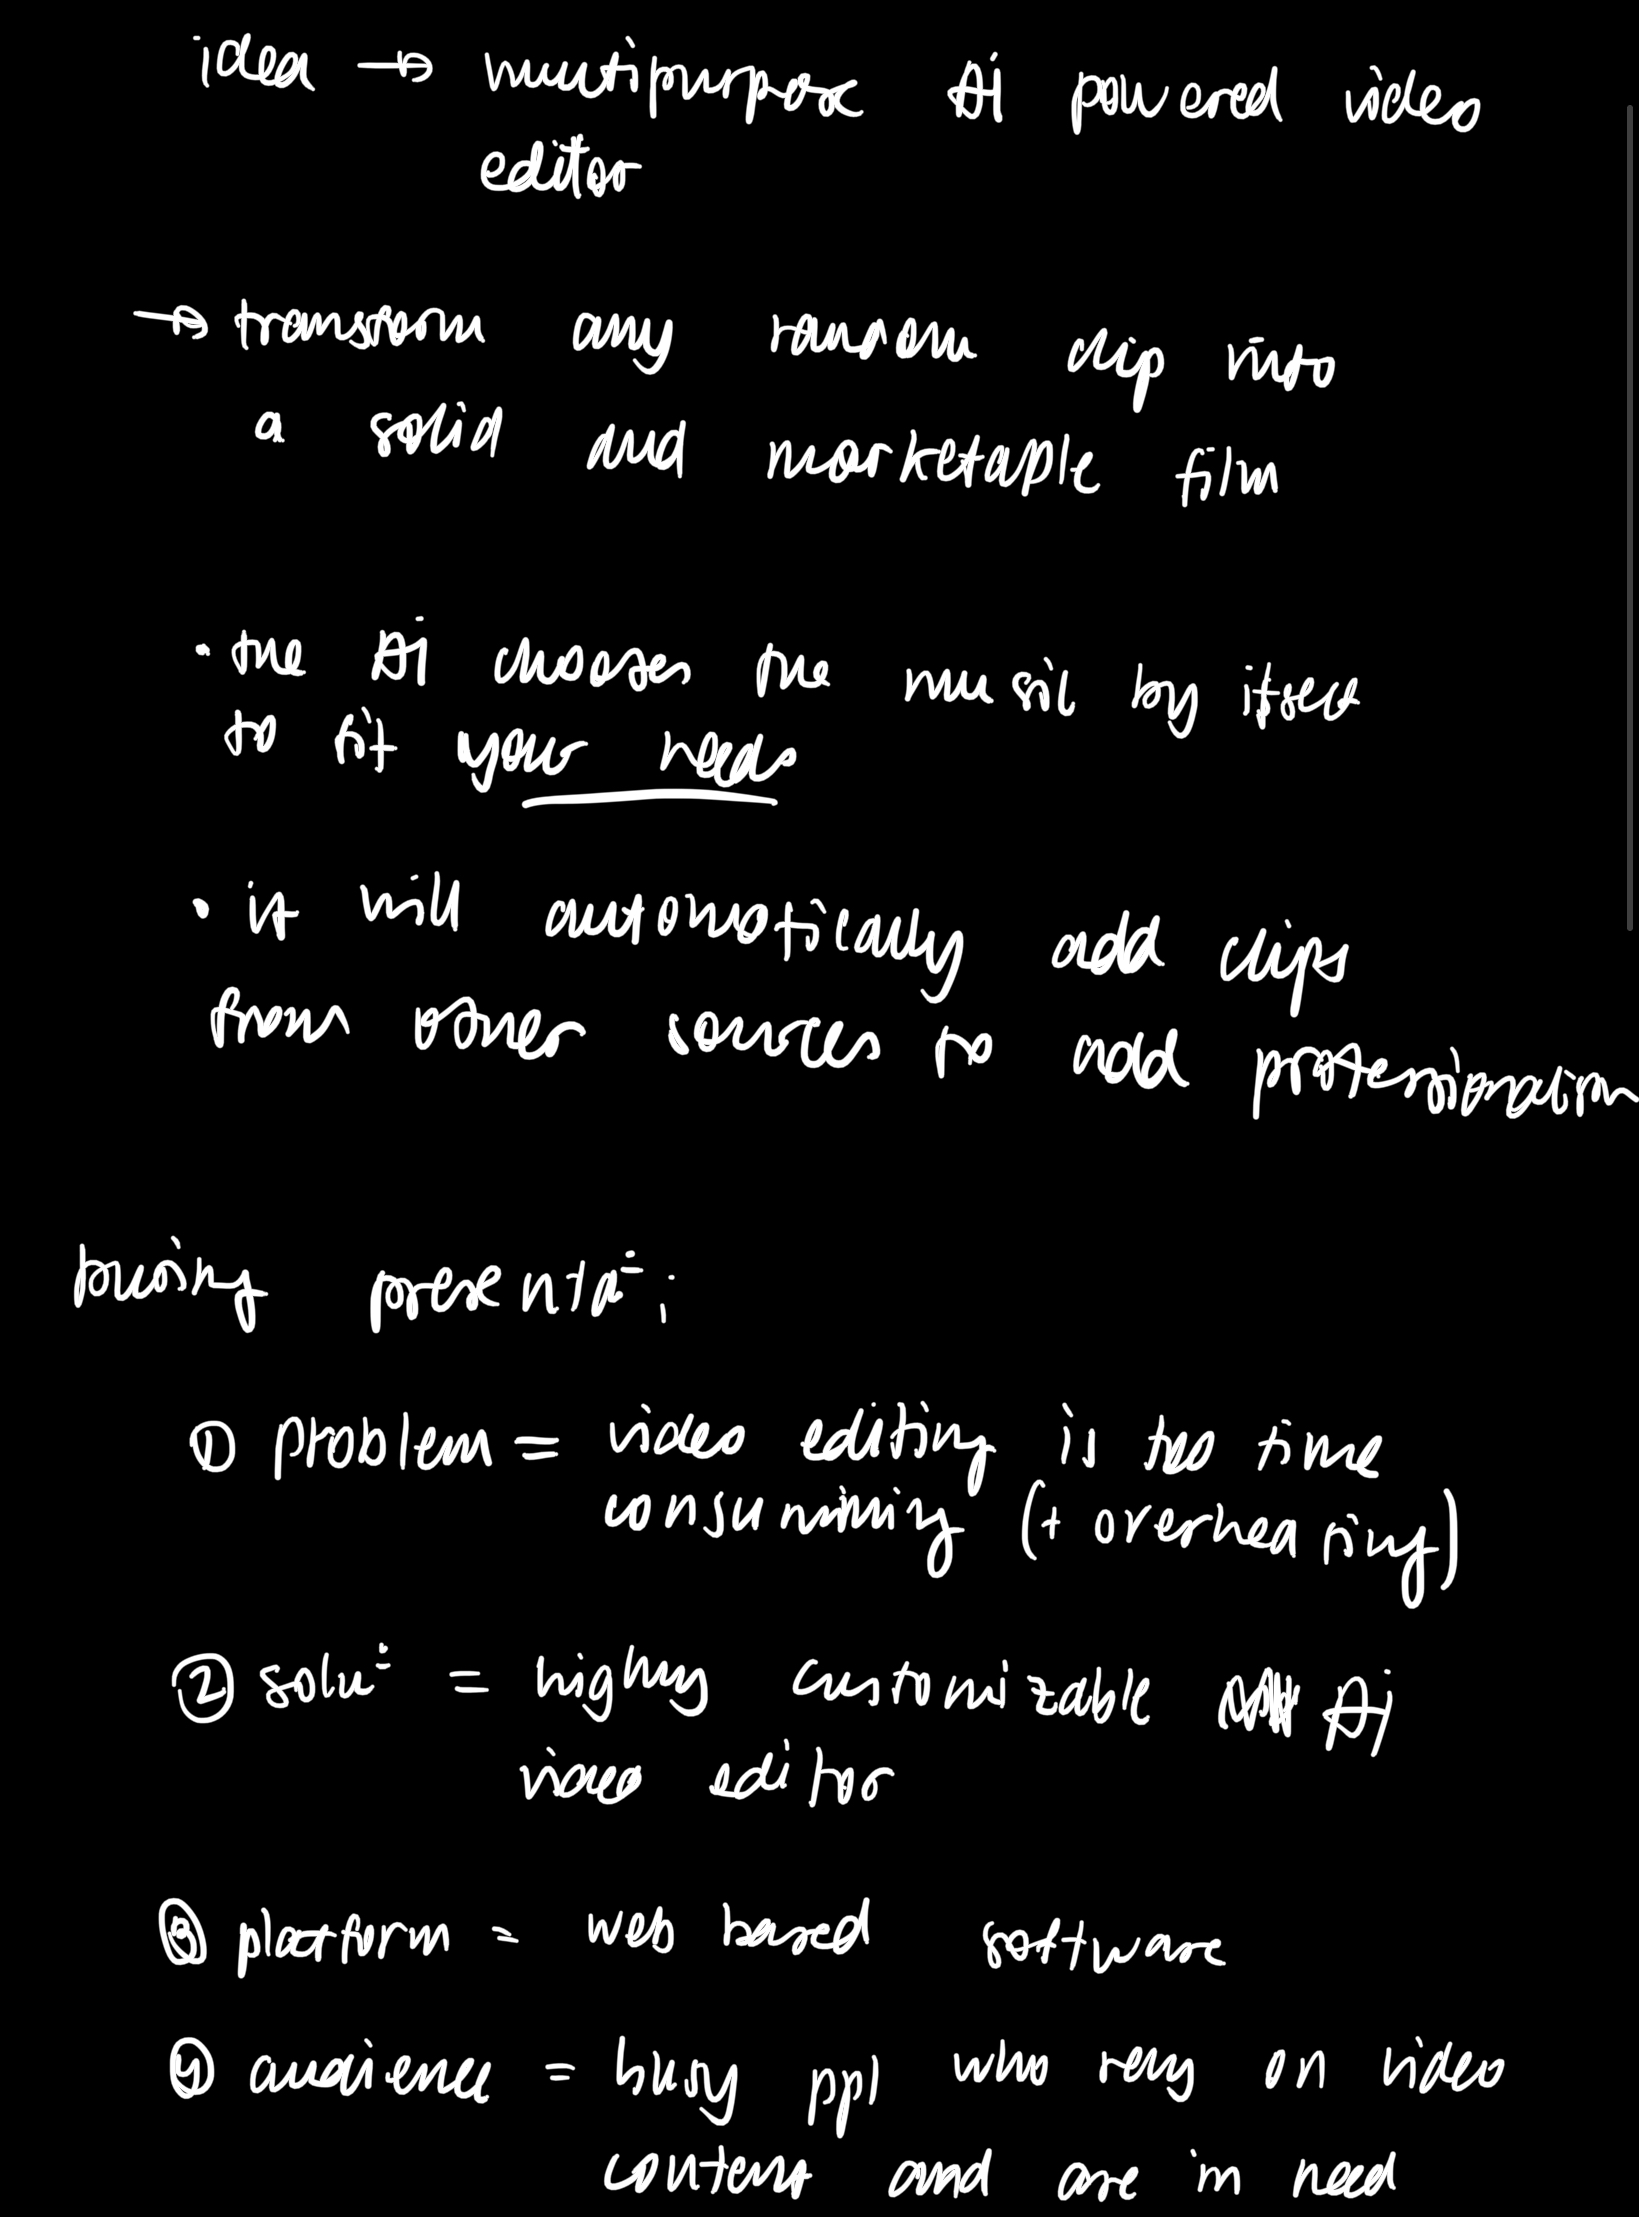 idea → multipurpose AI powered video
editor
→ transform any random clip into
a solid and marketable film
· the AI chooses the music by itself
to fit your needs
· it will automatically add clips
from other sources to add professionalism
during presentat°;
① problem = video editing is too time
consuming (+ overheating)
② solu° = highly customizable AI
video editor
③ platform = web based software
④ audience = busy ppl who rely on video
content and are in need